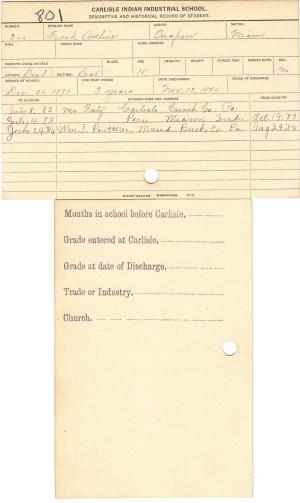 801
CARLISLE INDIAN INDUSTRIAL SCHOOL.
DESCRIPTIVE AND HISTORICAL RECORD OF STUDENT.
NUMBER ENGLISH NAME AGENCY NATION
Frank Quapaw Miami
BAND INDIAN NAME HOME ADDRESS
PARENTS LIVING OR DEAD BLOOD AGE HEIGHT WEIGHT FORCED INSP. FORCED EXPR. SEX.
FATHER, Dead MOTHER, Dead 18 M
ARRIVED AT SCHOOL FOR WHAT PERIOD DATE DISCHARGED CAUSE OF DISCHARGE
Dec. 20, 1881 3 years Nov. 12, 1884
TO COUNTRY PATRONS NAME AND ADDRESS FROM COUNTRY
July 8, 82 Mr. Carlisle Cumb Co. Pa.
July 4, 83 Peru Miami Inder Oct 19, 83
June 24, 84 Wm. Maud, Bucks Co. Pa Aug 29, 84
Months in school before Carlisle,
Grade entered at Carlisle,
Grade at date of Discharge,
Trade or Industry,
Church.